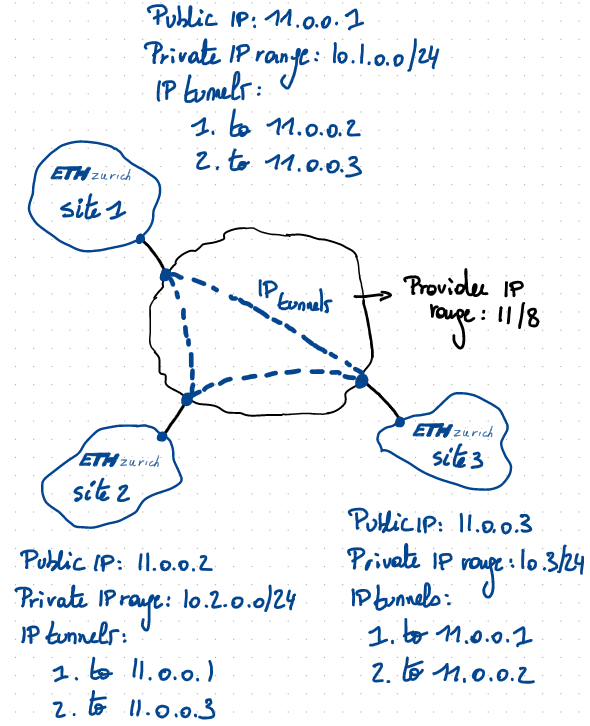 Public IP: 11.0.0.1
Private IP range: 10.1.0.0/24
IP tunnels:
1. to 11.0.0.2
2. to 11.0.0.3
ETH zürich
site 1
IP tunnels
Provider IP
range: 11/8
ETH zürich
site 2
ETH zürich
site 3
Public IP: 11.0.0.2
Private IP range: 10.2.0.0/24
IP tunnels:
1. to 11.0.0.1
2. to 11.0.0.3
Public IP: 11.0.0.3
Private IP range: 10.3/24
IP tunnels:
1. to 11.0.0.1
2. to 11.0.0.2